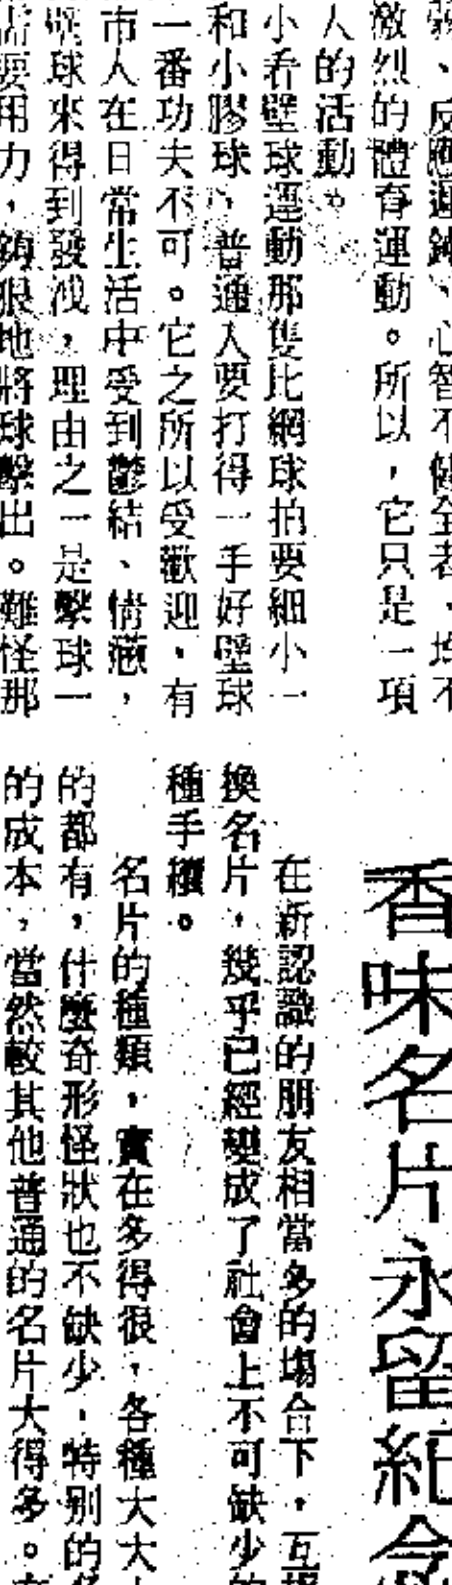 弱、反應遲鈍、心智不健全者，均不
激烈的體育運動。所以，它只是一項
人的活動。
小看壁球運動那隻比網球拍要細小一
和小膠球，普通人要打得一手好壁球
一番功夫不可。它之所以受歡迎，有
市人在日常生活中受到鬱結、情緒，
壁球來得到發洩，理由之一是擊球一
需要用力，狠狠地將球擊出。難怪那
香味名片永留紀念
在新認識的朋友相當多的場合下，互
換名片，幾乎已經變成了社會上不可缺少的
種手續。
名片的種類，實在多得很，各種大大
的都有，什麼奇形怪狀也不缺少，特別的名
的成本，當然較其他普通的名片大得多。